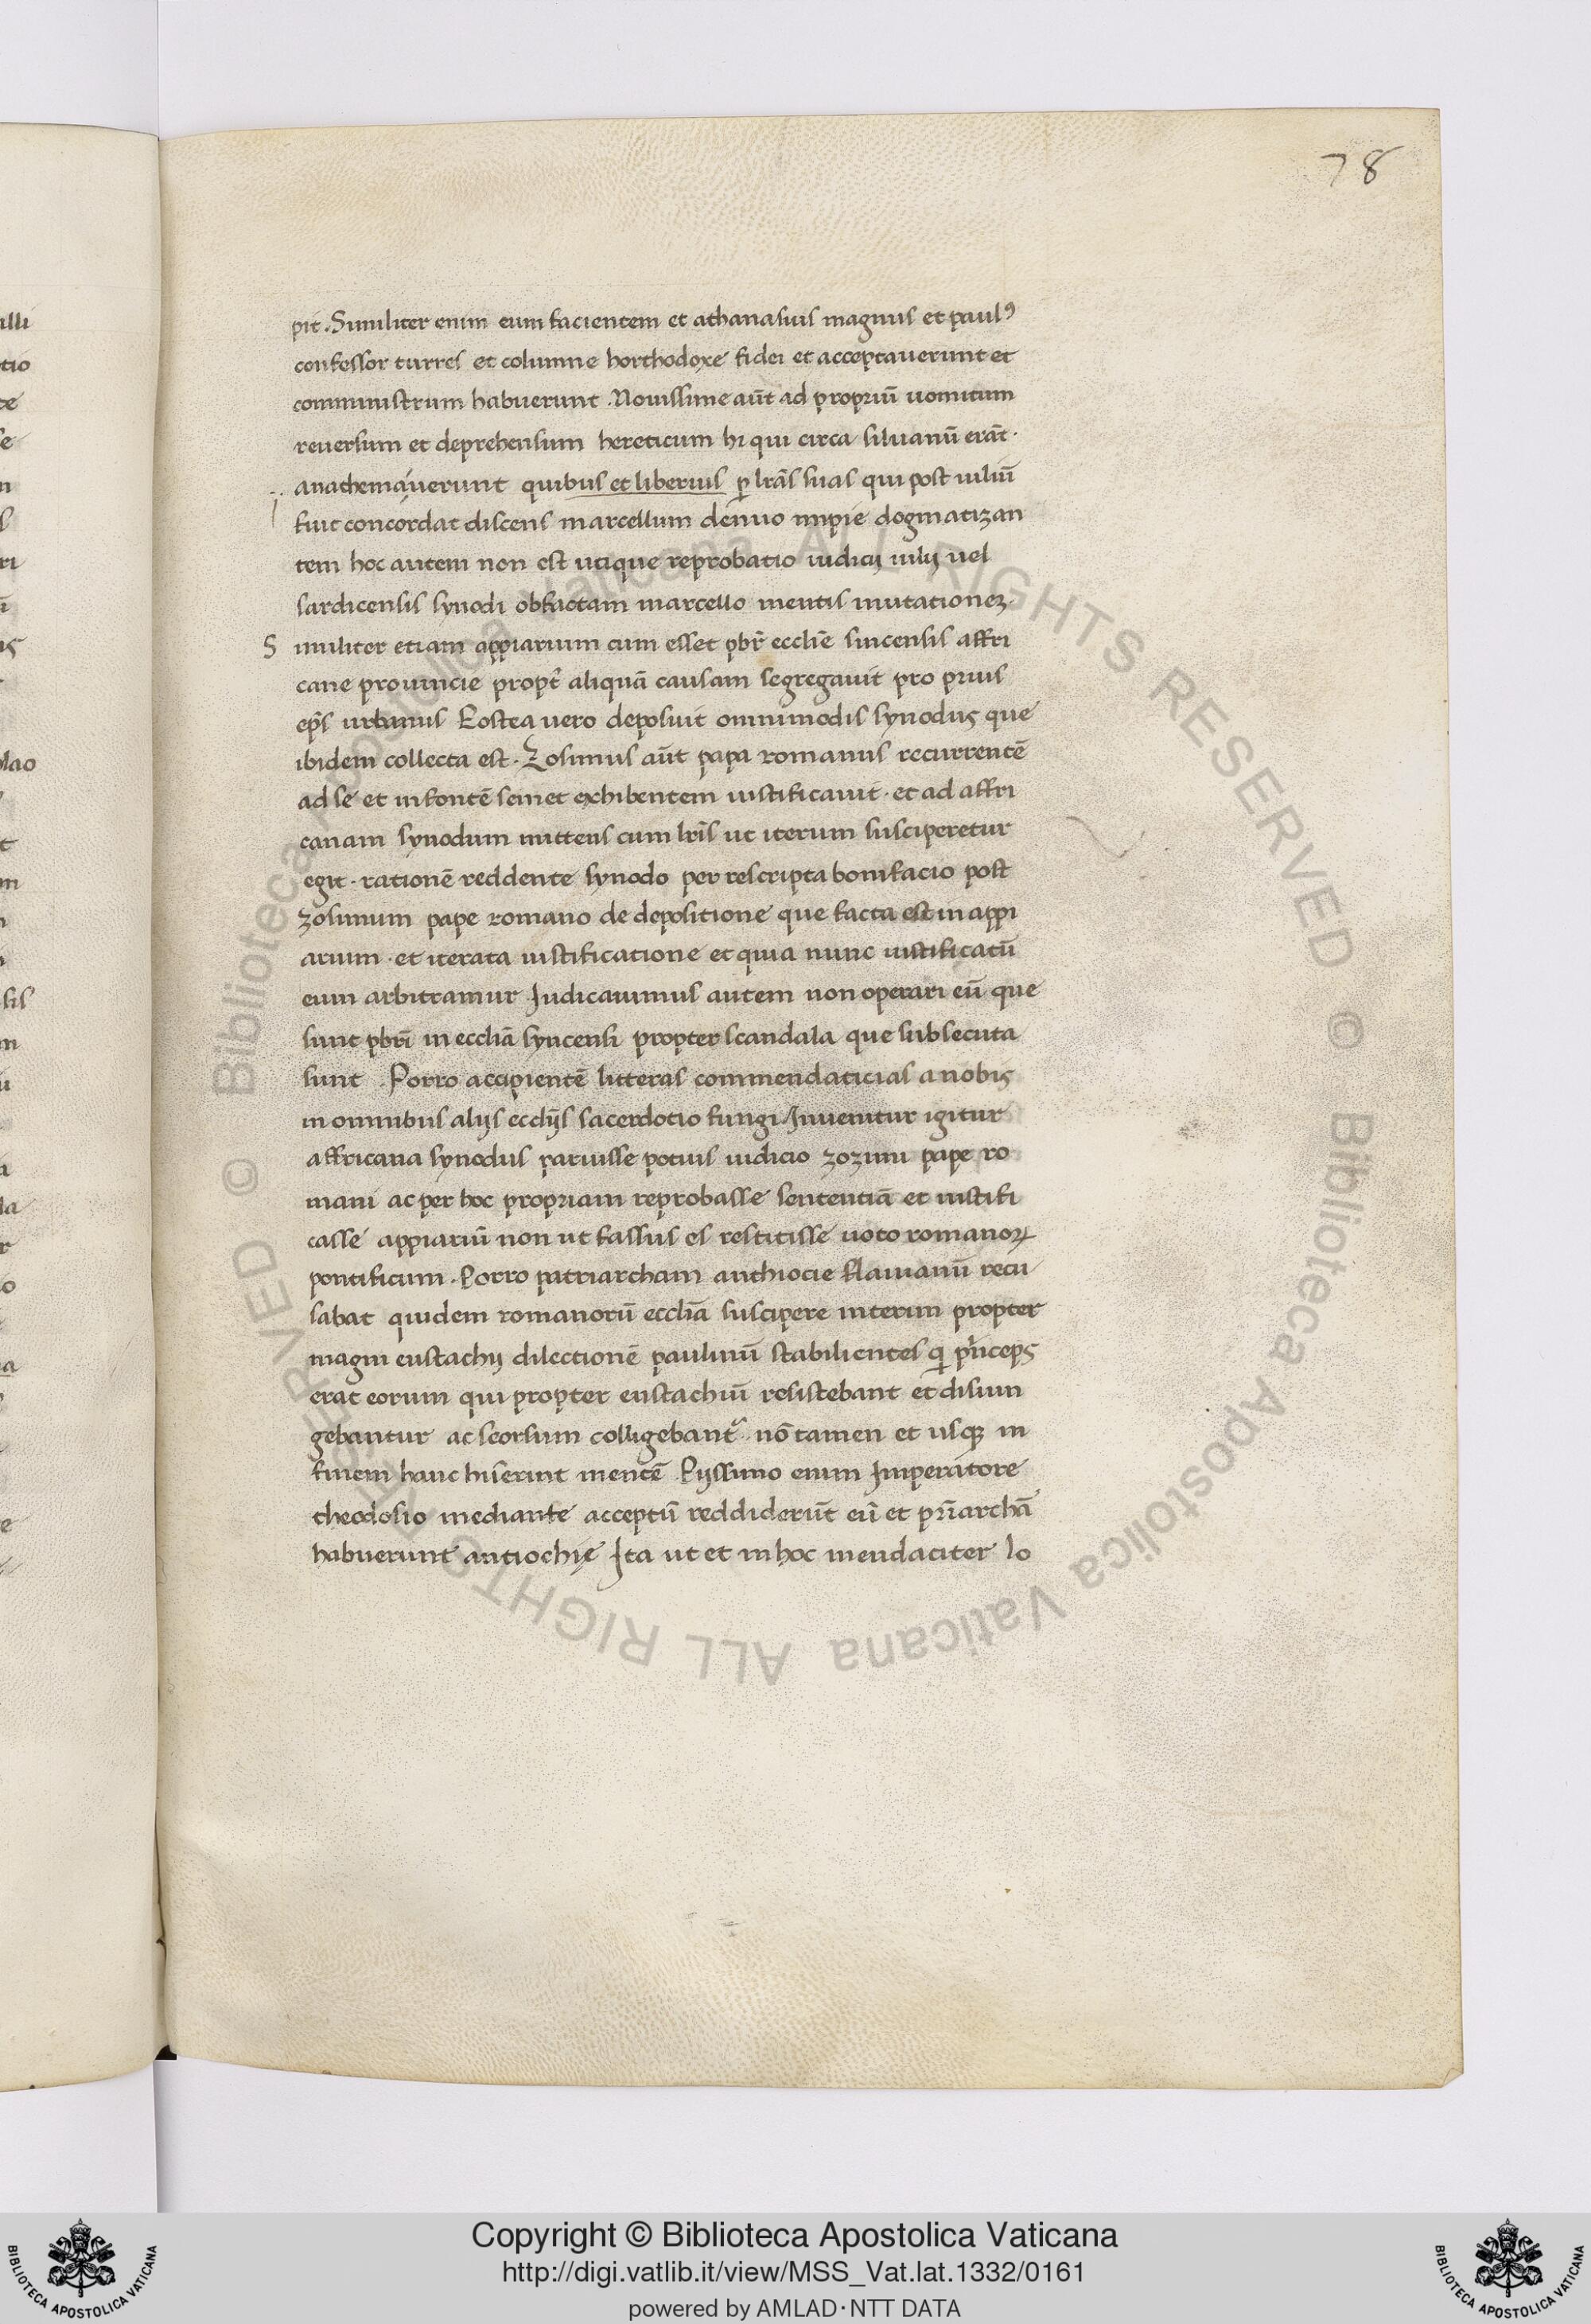 78
pit. Similiter enim eum facientem et athanasius magnus et paulꝰ
confessor turres et columne horthodoxe fidei et acceptauerunt et
comministrum habuerunt. Nouissime aūt ad propriū uomitum
reuersum et deprehensum hereticum hi qui circa siluanū erāt.
anathemauerunt quibus et liberius ꝑ lr̄as suas qui post iuliū
fuit concordat discens marcellum denuo impie dogmatizan
tem hoc autem non est utique reprobatio iudicij iulij uel
sardicensis synodi obfactam marcello mentis mutationeꝫ.
S imiliter etiam appiarium cum esset pbr̄ eccliē sincensis affri
cane prouincie propt̄ aliquā causam segregauit pro prius
ep̄s urbanus Postea uero deposuit omnimodis synodus que
ibidem collecta est. Zosimus aūt papa romanus recurrentē
ad se et infontē semet exhibentem iustificauit. et ad affri
canam synodum mittens cum lr̄is ut iterum susciperetur
egit. rationē reddente synodo per rescripta bonifacio post
zosimum pape romano de depositione que facta est in appi
arium. et iterata iustificatione et quia nunc iustificatū
eum arbitramur Iudicauimus autem non operari eū que
sunt pbr̄i in eccliā syncensi propter scandala que subsecuta
sunt. Porro accipientē litteras commendaticias a nobis
in omnibus alijs eccl̄ijs sacerdotio fungi/Inuenitur igitur
affricana synodus paruisse potius iudicio zozimi pape ro
mani ac per hoc propriam reprobasse sententiā et iustifi
casse appiariū non ut fassus es restitisse uoto romanoꝝ
pontificum. Porro patriarcham anthiocie flauianū recu
sabat quidem romanorū eccliā suscipere interim propter
magni eustachij dilectionē paulinū stabilientes qi pr̄iceps
erat eorum qui propter eustachiū resistebant et disiun
gebantur ac seorsum colligebant᷑ nō tamen et usqꝫ in
finem hanc hiserint mentē Pijssimo enim Imperatore
theodosio mediante acceptū reddiderūt eū et pr̄iarchā
habuerunt antiochię Ita ut et in hoc mendaciter lo
© Biblioteca Apostolica Vaticana ALL RIGHTS RESERVED © Biblioteca Apostolica Vaticana ALL RIGHTS RESERVED
Copyright © Biblioteca Apostolica Vaticana
http://digi.vatlib.it/view/MSS_Vat.lat.1332/0161
powered by AMLAD·NTT DATA
BIBLIOTECA APOSTOLICA VATICANA
BIBLIOTECA APOSTOLICA VATICANA